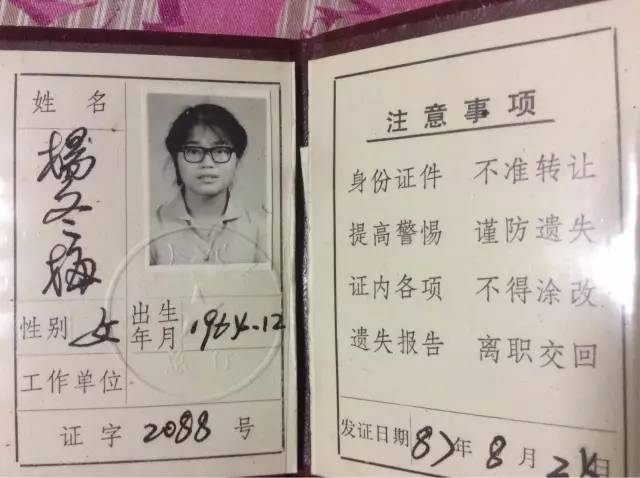 姓名
楊冬梅
性别 女 出生年月 1964.12
工作单位
证字 2088 号
注意事项
身份证件 不准转让
提高警惕 谨防遗失
证内各项 不得涂改
遗失报告 离职交回
发证日期 87年8月24日